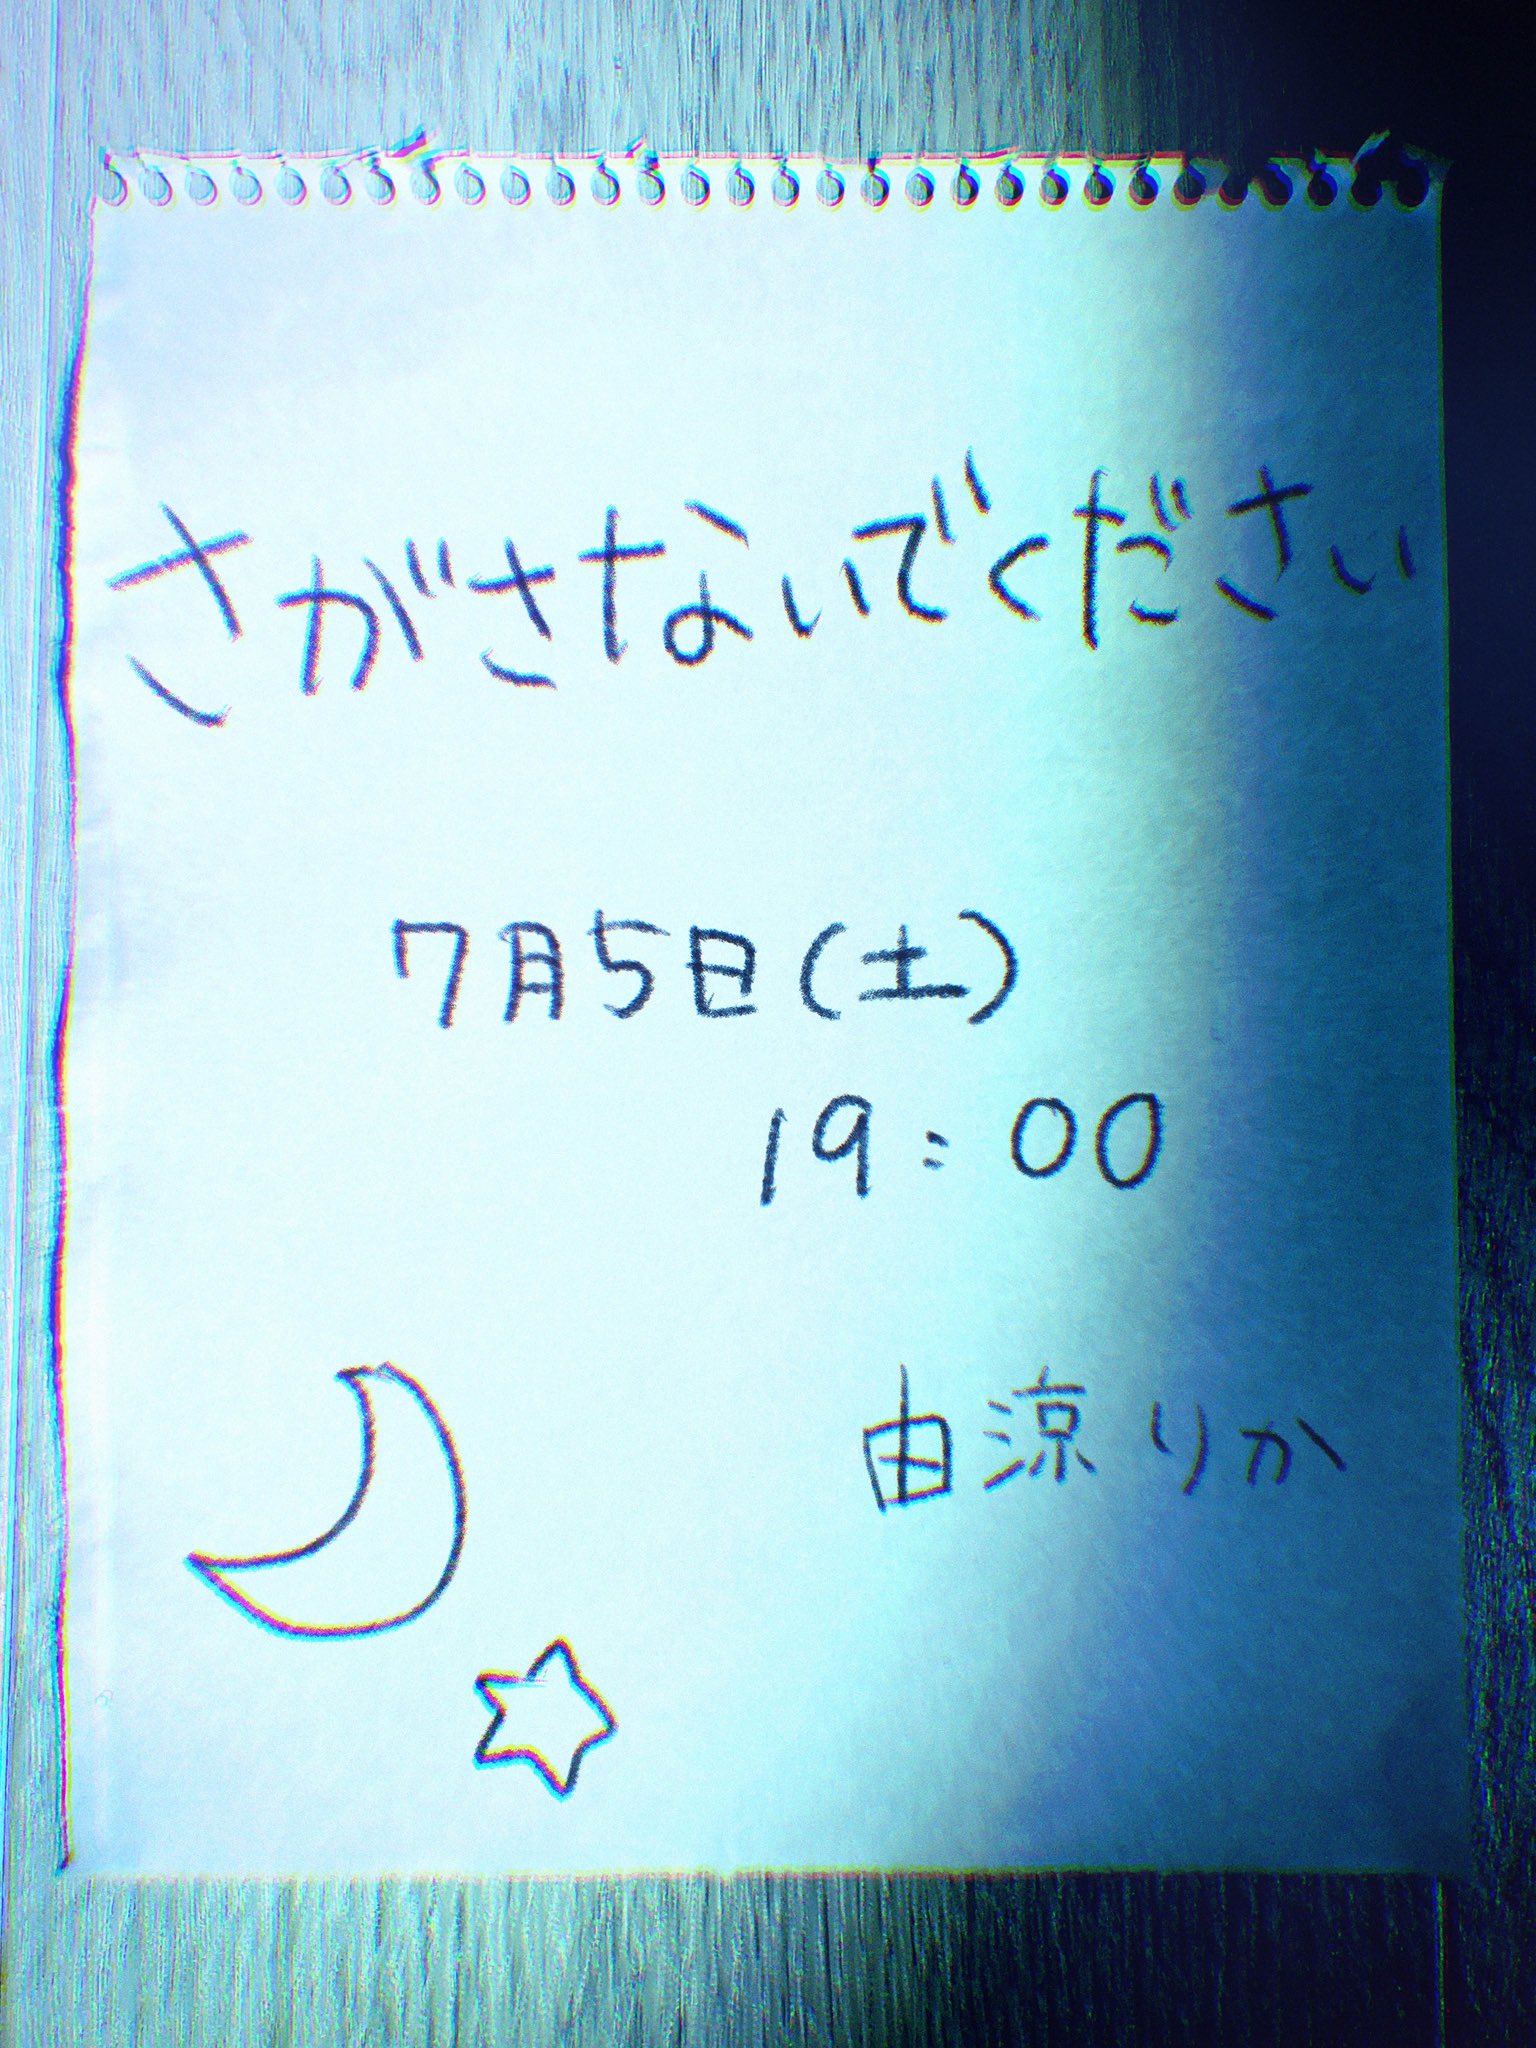 さがさないでください
7月5日(土)
19:00
由涼りか